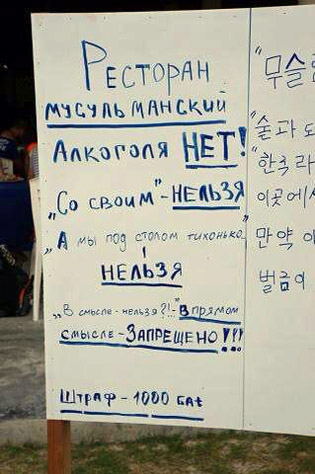 Ресторан
мусульманский
Алкоголя НЕТ!
„Со своим"-НЕЛЬЗЯ
„А мы под столом тихонько"
НЕЛЬЗЯ
„В смысле-нельзя?!-"В прямом
смысле-ЗАПРЕЩЕНО!!!
Штраф-1000 бат
"무슬
"술과
"한축
이곳에서
만약
벌금이